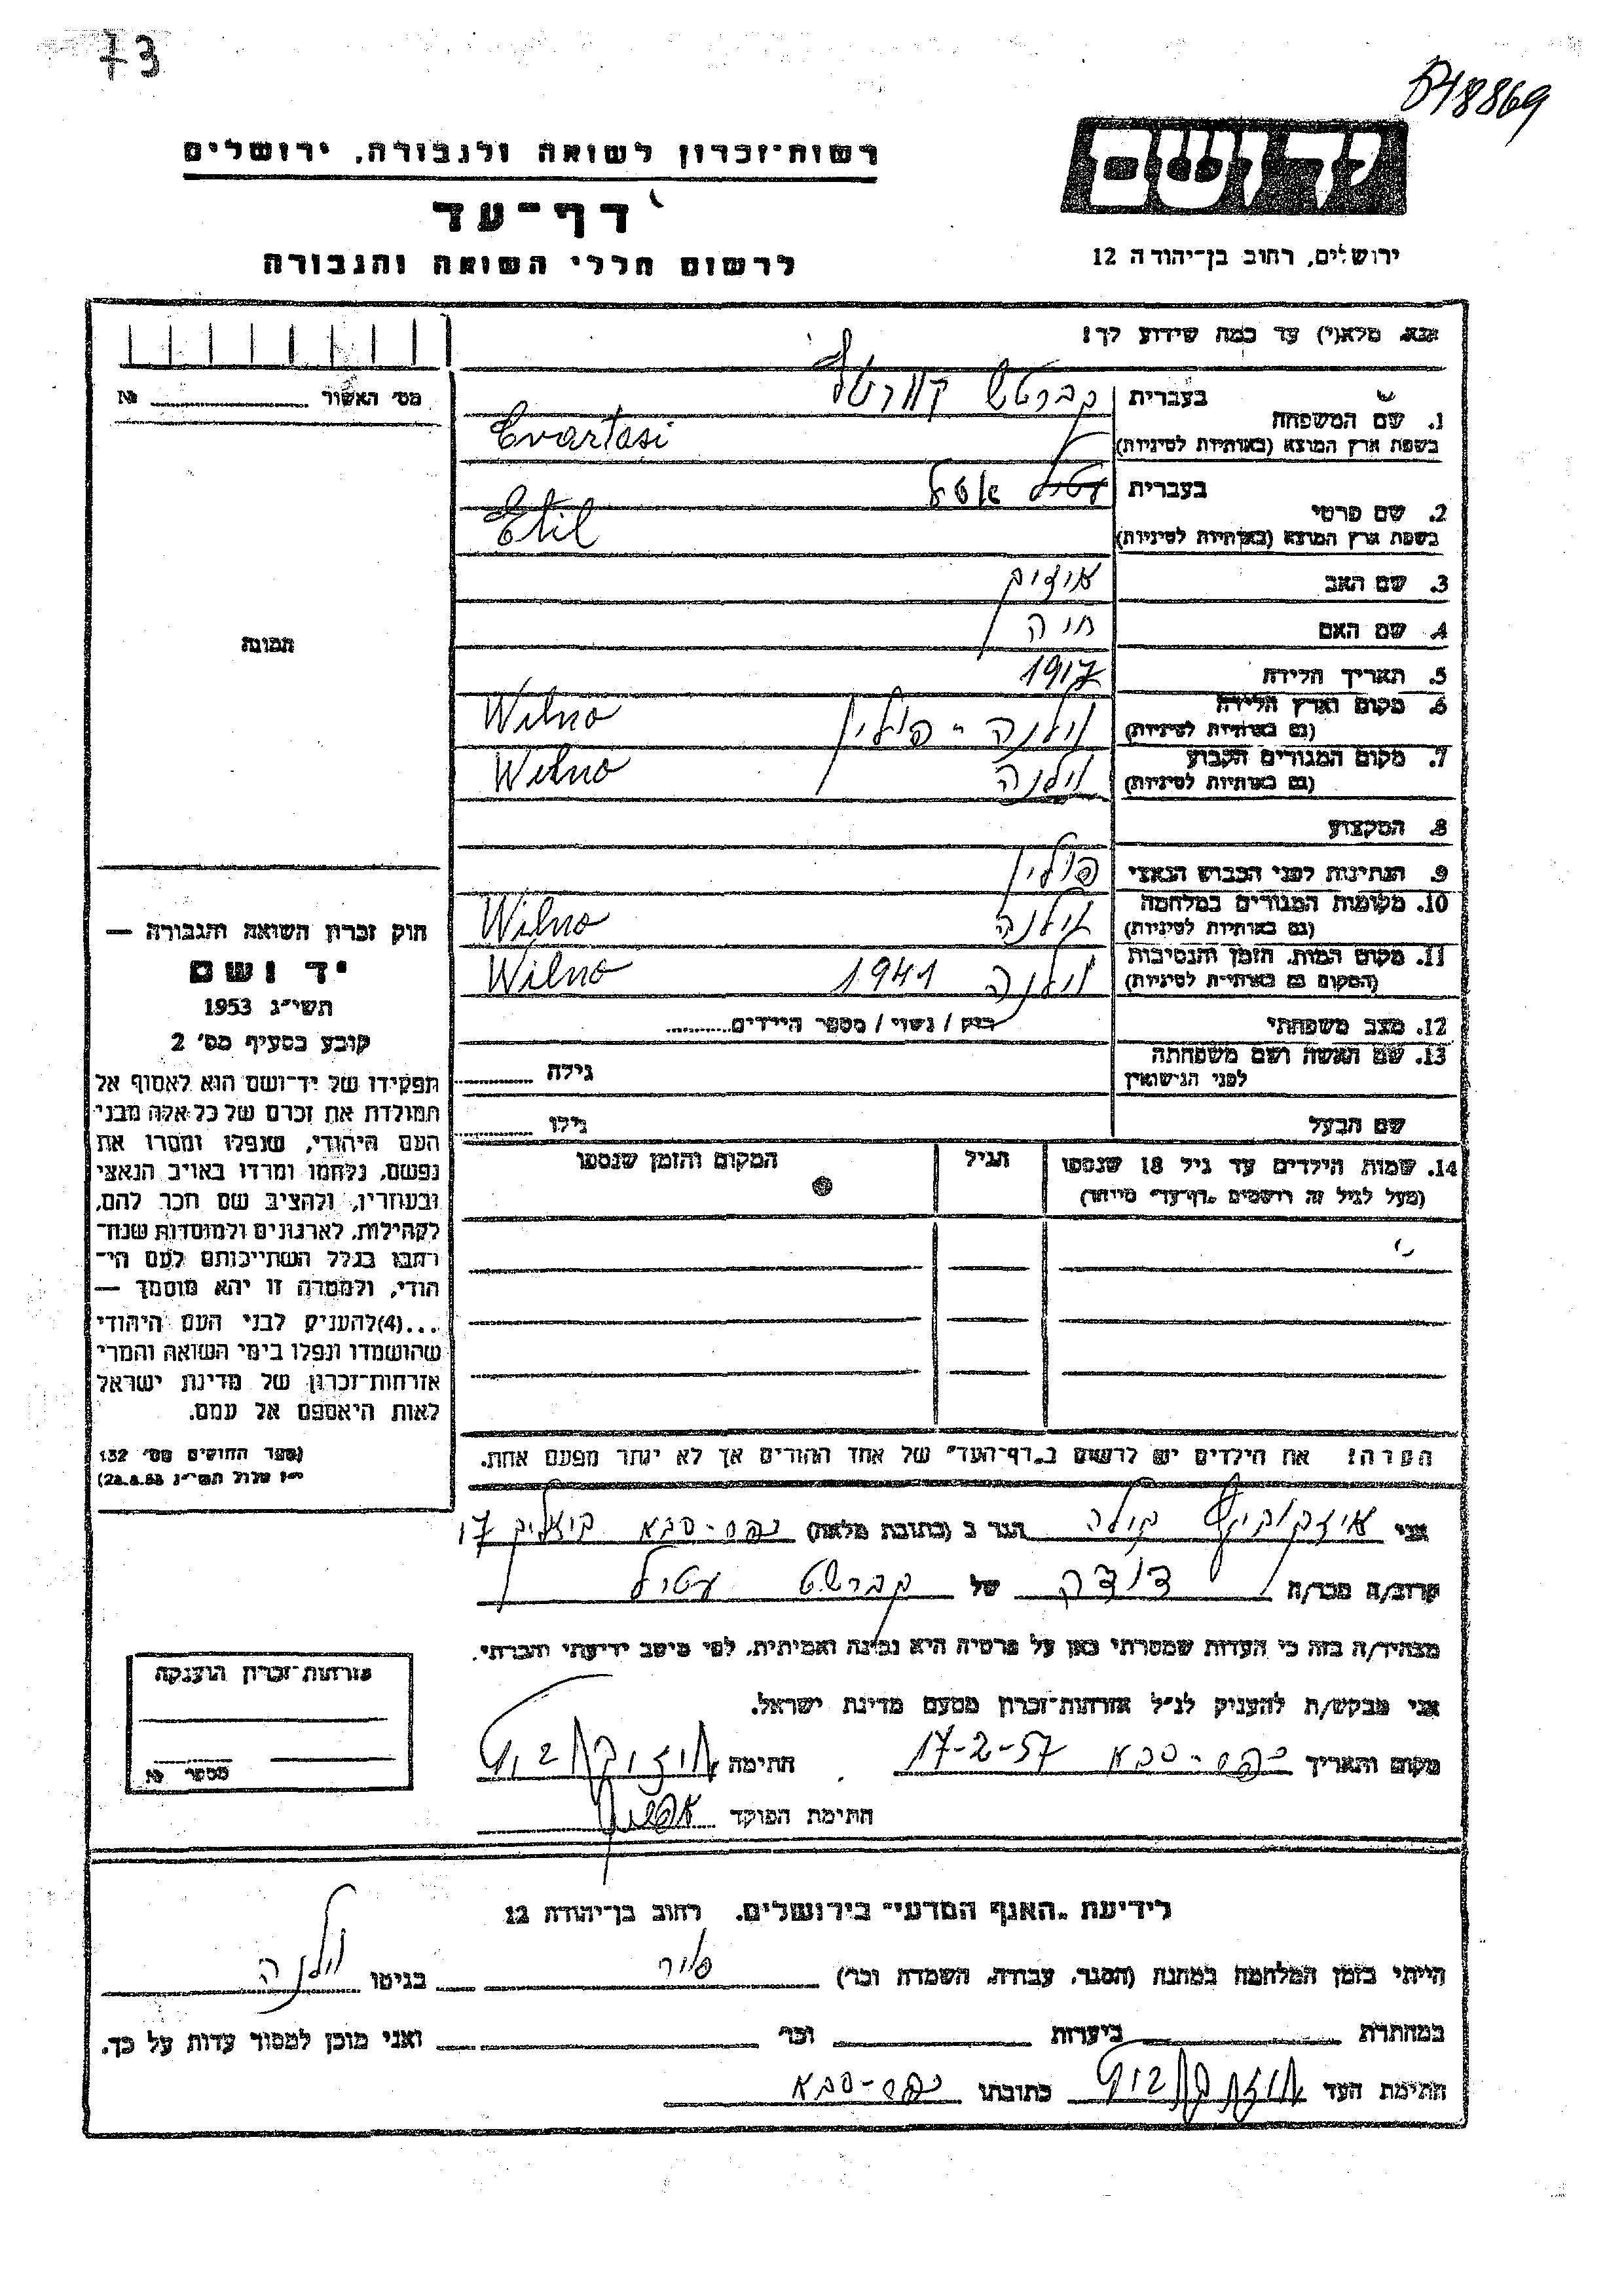 73
רשות־זכרון לשואה ולגבורה, ירושלים
דף־עד
לרשום חללי השואה והגבורה
ירושלים, רחוב בן־יהודה 12
אנא, מלא(י) עד כמה שידוע לך!
מס׳ האשור № 
1. שם המשפחה בעברית
בשפת ארץ המוצא (באותיות לטיניות) Cvartasi
2. שם פרטי בעברית עטיל אטל
בשפת ארץ המוצא (באותיות לטיניות) Etil
3. שם האב
4. שם האם חיה
5. תאריך הלידה 1917
6. מקום וארץ הלידה (גם באותיות לטיניות) וילנה - פולין Wilno
7. מקום המגורים הקבוע (גם באותיות לטיניות) וילנה Wilno
8. המקצוע
9. הנתינות לפני הכבוש הנאצי פולין
10. מקומות המגורים במלחמה (גם באותיות לטיניות) וילנה Wilno
11. מקום המות, הזמן והנסיבות (המקום גם באותיות לטיניות) וילנה 1941 Wilno
12. מצב משפחתי רוק / נשוי / מספר הילדים
13. שם האשה ושם משפחתה לפני הנישואין גילה
שם הבעל גילו
14. שמות הילדים עד גיל 18 שנספו הגיל המקום והזמן שנספו
(מעל לגיל זה רושמים "דף־עד" מיוחד)
הערה! את הילדים יש לרשום ב"דף־העד" של אחד ההורים אך לא יותר מפעם אחת.
תמונה
חוק זכרון השואה והגבורה —
יד ושם
תשי״ג 1953
קובע בסעיף מס׳ 2
תפקידו של יד־ושם הוא לאסוף אל
המולדת את זכרם של כל אלה מבני
העם היהודי, שנפלו ומסרו את
נפשם, נלחמו ומרדו באויב הנאצי
ובעוזריו, ולהציב שם וזכר להם,
לקהילות, לארגונים ולמוסדות שנח־
רבו בגלל השתייכותם לעם הי־
הודי, ולמטרה זו יהא מוסמך —
...(4) להעניק לבני העם היהודי
שהושמדו ונפלו בימי השואה והמרי
אזרחות־זכרון של מדינת ישראל
לאות היאספם אל עמם.
(ספר החוקים מס׳ 132
י״ז אלול תשי״ג 28.8.53)
אני הגר ב (כתובת מלאה) כפר-סבא 17
קרוב/ה מכר/ה דודה של עטיל
מצהיר/ה בזה כי העדות שמסרתי כאן על פרטיה היא נכונה ואמיתית, לפי מיטב ידיעתי והכרתי.
אני מבקש/ת להעניק לנ״ל אזרחות־זכרון מטעם מדינת ישראל.
מקום והתאריך כפר-סבא 17-2-57 חתימה
חתימת הפוקד
אזרחות־זכרון הוענקה
מספר №
לידיעת "האגף המדעי" בירושלים, רחוב בן־יהודה 12
הייתי בזמן המלחמה במחנה (הסגר, עבודה, השמדה וכו׳) בגיטו וילנה
במחתרת ביערות וכו׳ ואני מוכן למסור עדות על כך.
חתימת העד כתובתו כפר-סבא